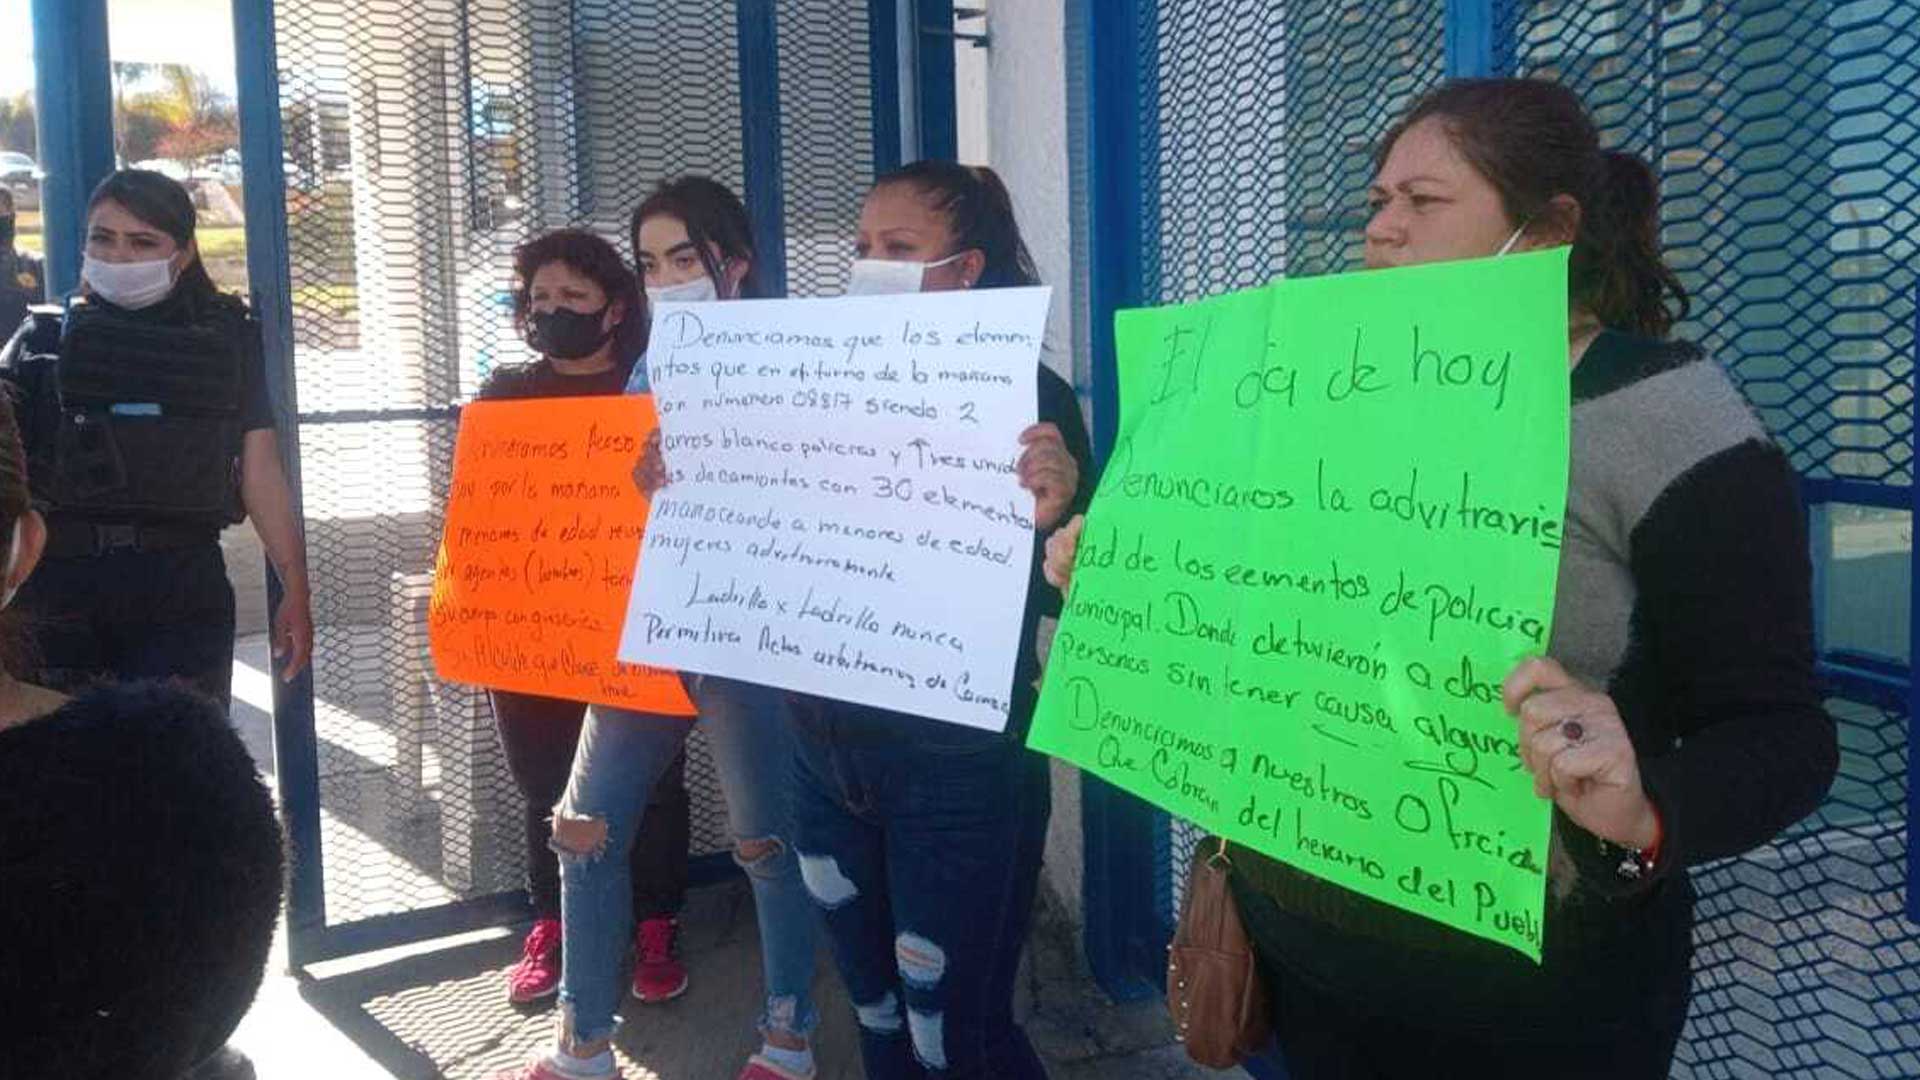 Acoso
hoy por la mañana
menores de edad
agentes (hombres)
su cuerpo con
Denunciamos que los elemm
ntos que en el turno de la mañana
con numanero 08817 Siendo 2
carros blanco policias y Tres unid
es de camiontas con 30 elementos
manoceando a menores de edad.
mujeres
Ladrillo x Ladrillo nunca
Permitira Actos arbitrarios de
El dia de hoy
Denunciamos la advitrarie
dad de los eementos de policia
Municipal. Donde detuvierón a dos
personas sin tener causa alguna
Denunciamos a nuestros
Que Cobran del herario del Pueblo